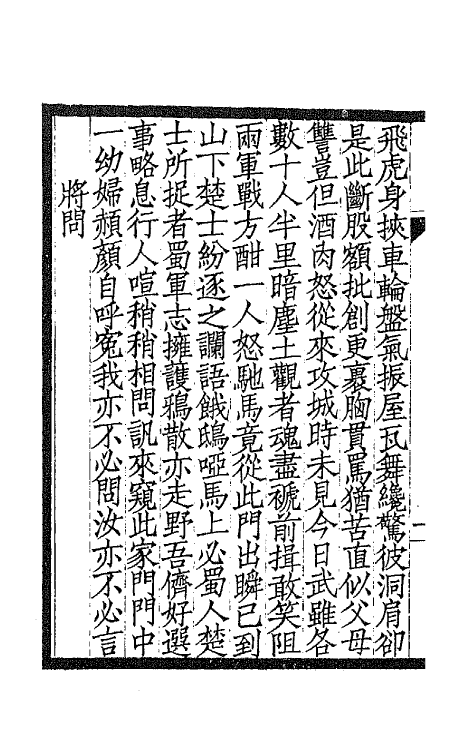 飛虎身挾車輪盤氣振屋瓦舞纔驚彼洞肩卻
是此斷股額批創更裹胸貫罵猶苦直似父母
讐豈但酒肉怒從來攻城時未見今日武雖各
數十人半里暗塵土觀者魂盡褫前揖敢笑阻
兩軍戰方酣一人怒馳馬竟從此門出瞬已到
山下楚士紛逐之讕語餓鴟啞馬上必蜀人楚
士所捉者蜀軍志擁護鴉散亦走野吾儕好選
事略息行人喧稍稍相問訊來窺此家門門中
一幼婦頳顏自呼冤我亦不必問汝亦不必言
將問